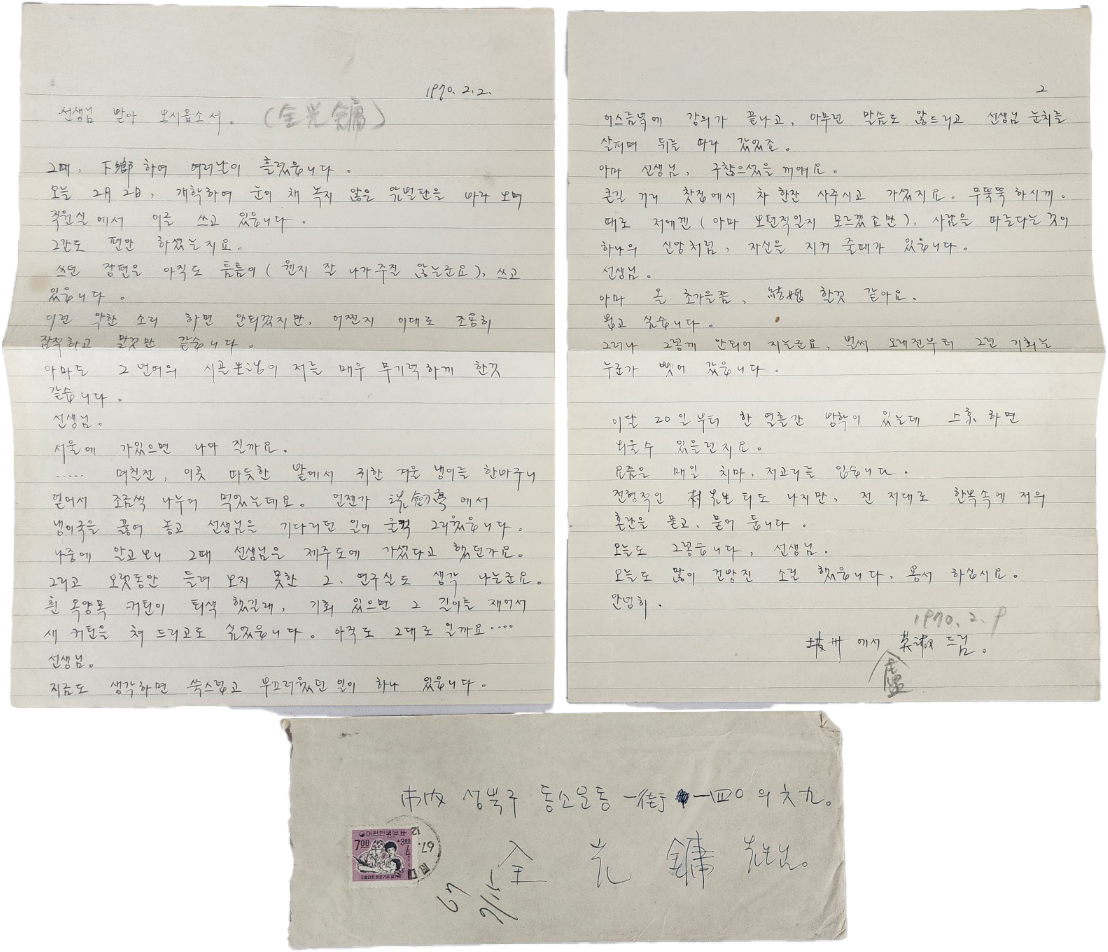 1970. 2. 2.
선생님 받아 보시옵소서. (全光鏞)
그때, 下鄕하여 여러날이 흘렀읍니다.
오늘 2月 2日, 개학하여 눈이 채 녹지 않은 앞벌판을 바라보며
직원실에서 이글 쓰고 있읍니다.
그간도 편안 하셨는지요.
쓰던 장편을 아직도 틈틈이 (웬지 잘 나가주질 않는군요), 쓰고
있읍니다.
이런 약한 소리 하면 안되겠지만, 어쩐지 이대로 조용히
잠적하고 말것만 같습니다.
아마도 그 번여의 시골 生活이 저를 매우 무기력하게 한것
같습니다.
선생님.
서울에 가있으면 나아 질까요.
..... 며칠전, 이곳 따듯한 밭에서 귀한 겨울 냉이를 한바구니
얻어서 조금씩 나누어 먹었는데요. 언젠가 에서
냉이국을 끓여 놓고 선생님을 기다리던 일이 문득 그리웠읍니다.
나중에 알고보니 그때 선생님은 제주도에 가셨다고 했던가요.
그리고 오랫동안 들려 보지 못한 그, 연구실도 생각 나는군요.
흰 옥양목 커턴이 퇴색 했길래, 기회 있으면 그 길이를 재어서
새 커턴을 해 드리고도 싶었읍니다. 아직도 그대로 일까요....
선생님.
지금도 생각하면 쑥스럽고 부끄러웠던 일이 하나 있읍니다.
2
어스름녘에 강의가 끝나고, 아무런 말씀도 않드리고 선생님 눈치를
살피며 뒤를 따라 갔었죠.
아마 선생님, 귀찮으셨을 꺼예요.
큰길 거리 찻집에서 차 한잔 사주시고 가셨지요. 무뚝뚝 하시게.
때로 저에겐 (아마 보편적일지 모르겠죠만), 사람을 따른다는 것이
하나의 신앙처럼, 자신을 지켜 줄때가 있읍니다.
선생님.
아마 올 초가을쯤, 結婚 할것 같아요.
뵙고 싶습니다.
그러나 그렇게 안되어 지는군요, 벌써 오래전부터 그런 기회는
누군가 뺏어 갔읍니다.
이달 20일부터 한 열흘간 방학이 있는데 上京 하면
뵈올 수 있을런지요.
요즘은 매일 치마, 저고리를 입습니다.
전형적인 村 티도 나지만, 전 저대로 한복속에 저의
혼란을 묻고, 묻어 둡니다.
오늘도 그렇습니다, 선생님.
오늘도 많이 건방진 소릴 했읍니다. 용서 하십시요.
안녕히.
1970. 2. 9
坡州에서 英淑 드림.
盧
市內 성북구 동소문동 一街 一四0의 六九.
全光鏞 先生님.
대한민국우표
7.00
+3.00
67.
67
7/15